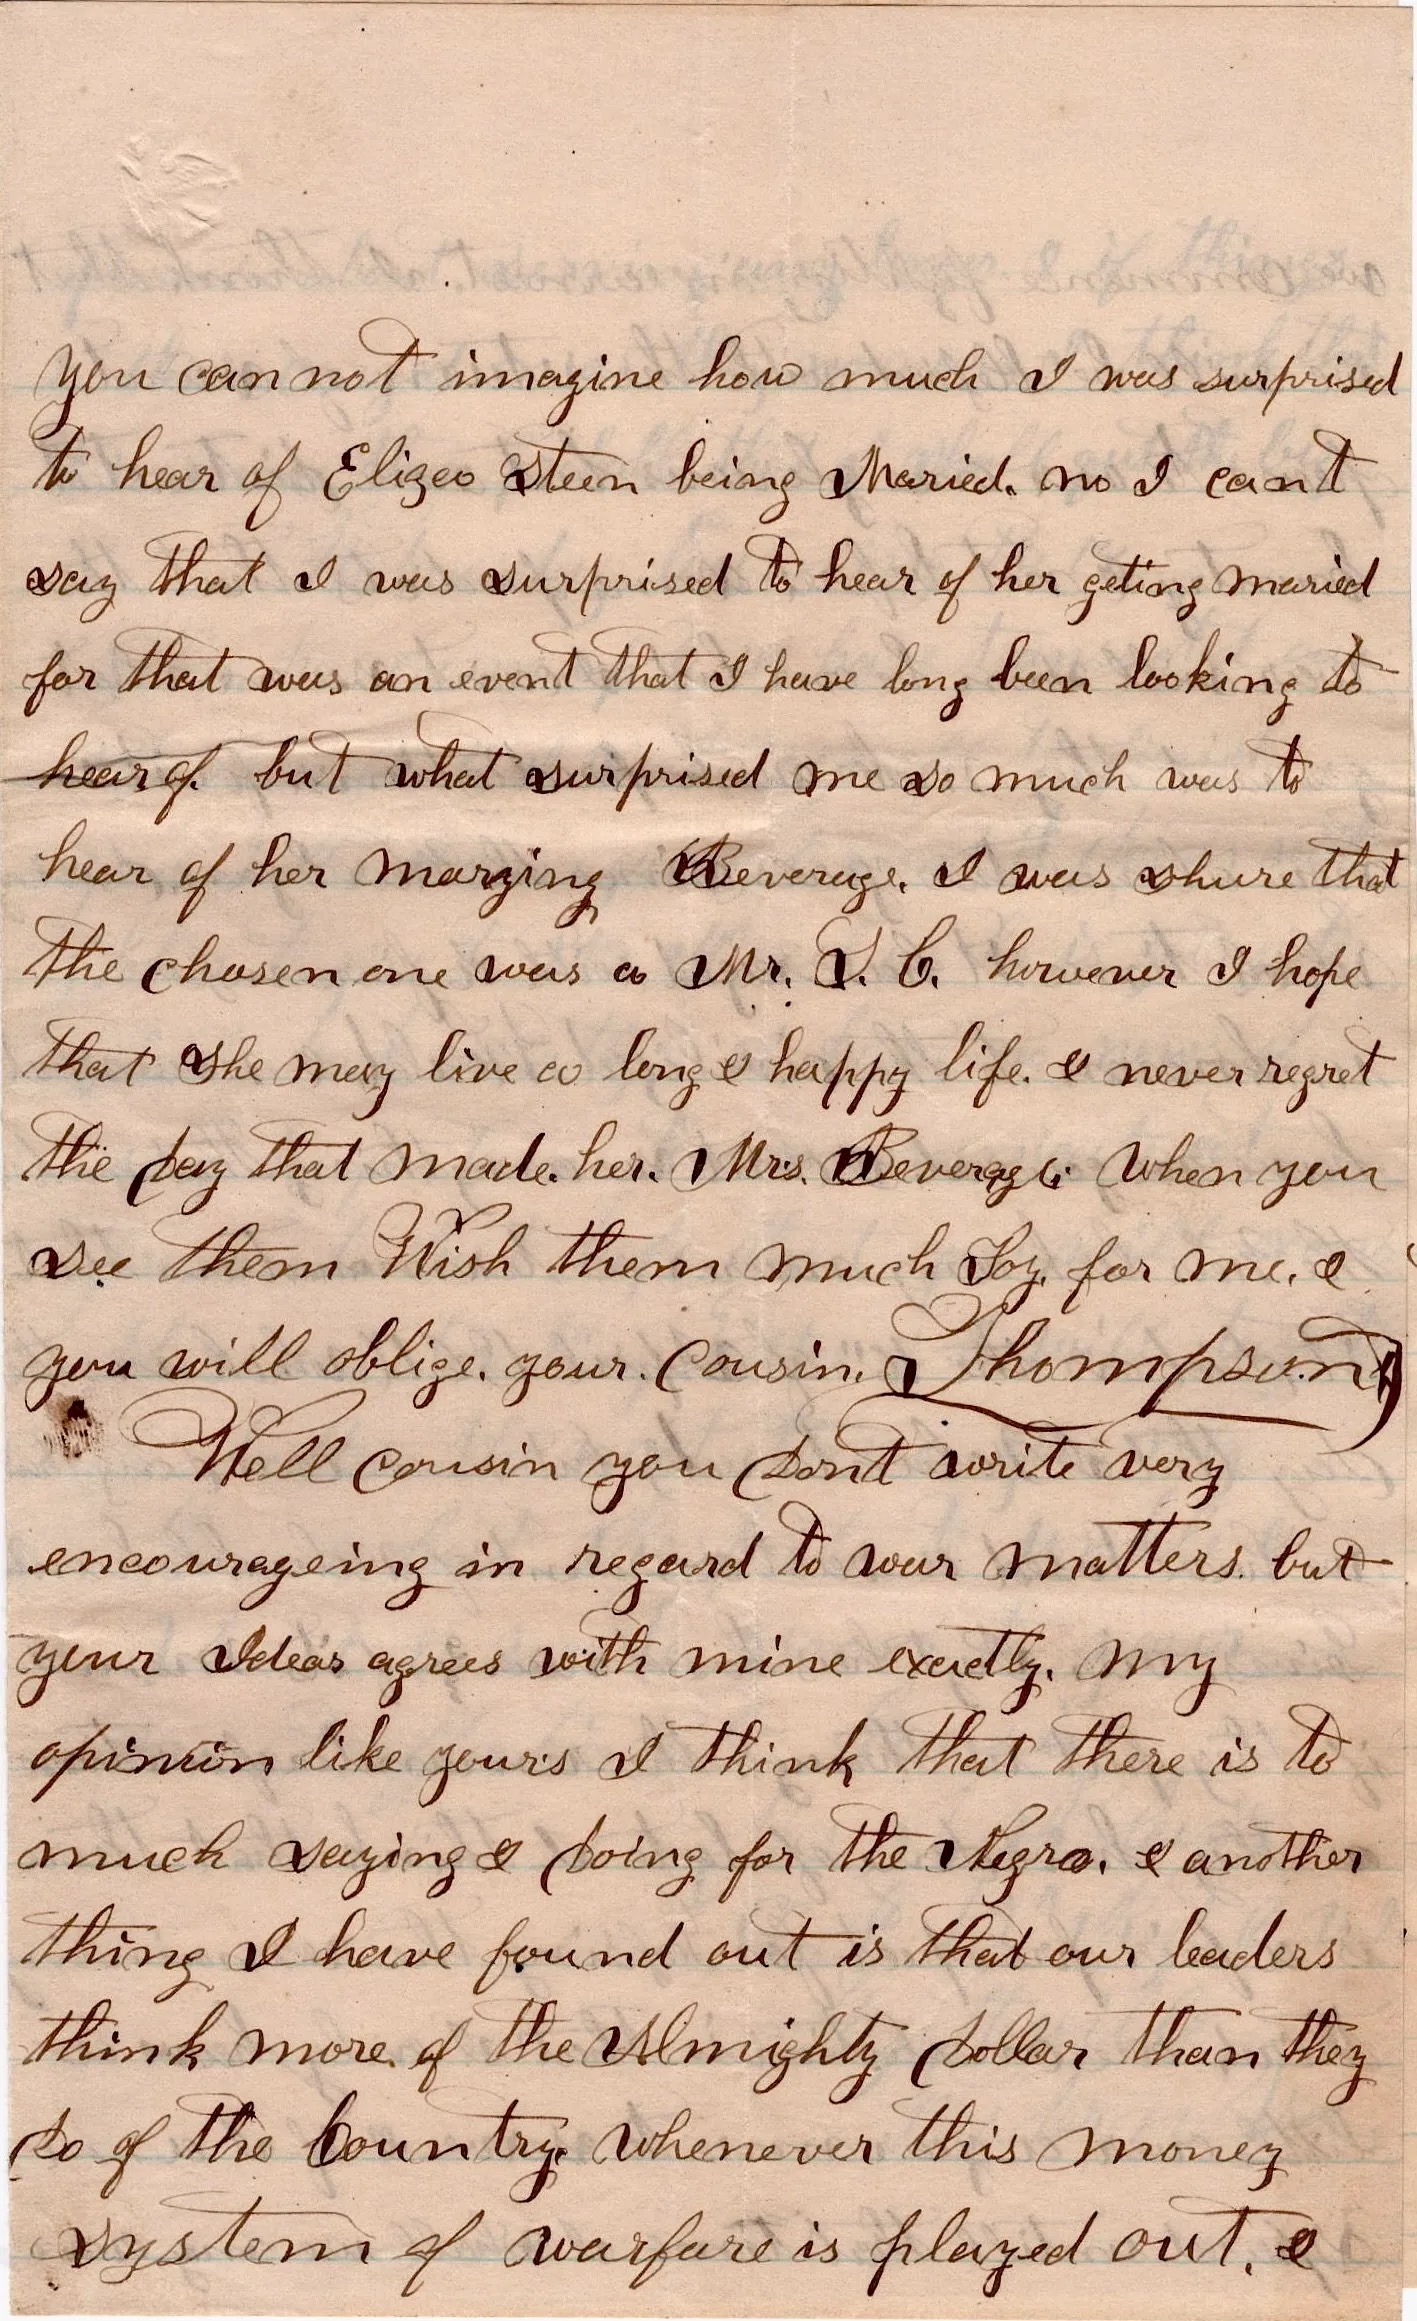 you cannot imagine how much I was surprised
to hear of Elizeo Steen being Maried. no I cant
say that I was surprised to hear of her geting maried
for that was an event that I have long been looking to
hear of. but what surprised me so much was to
hear of her marying Beverage. I was shure that
the chosen one was a Mr. S. C. however I hope
that She may live a long & happy life. & never regret
the Day that made. her. Mrs. Beverage. When you
see them Wish them much Joy. for me. &
you will oblige. your. Cousin. Thompson
Well cousin you Dont write very
encourageing in regard to war matters. but
your Ideas agrees with mine exactly. My
opinion like yours I think that there is to
much saying & Doing for the Negro. & another
thing I have found out is that our leaders
think more. of the Almighty Dollar than they
Do of the Country. whenever this money
system of warfare is played out. &